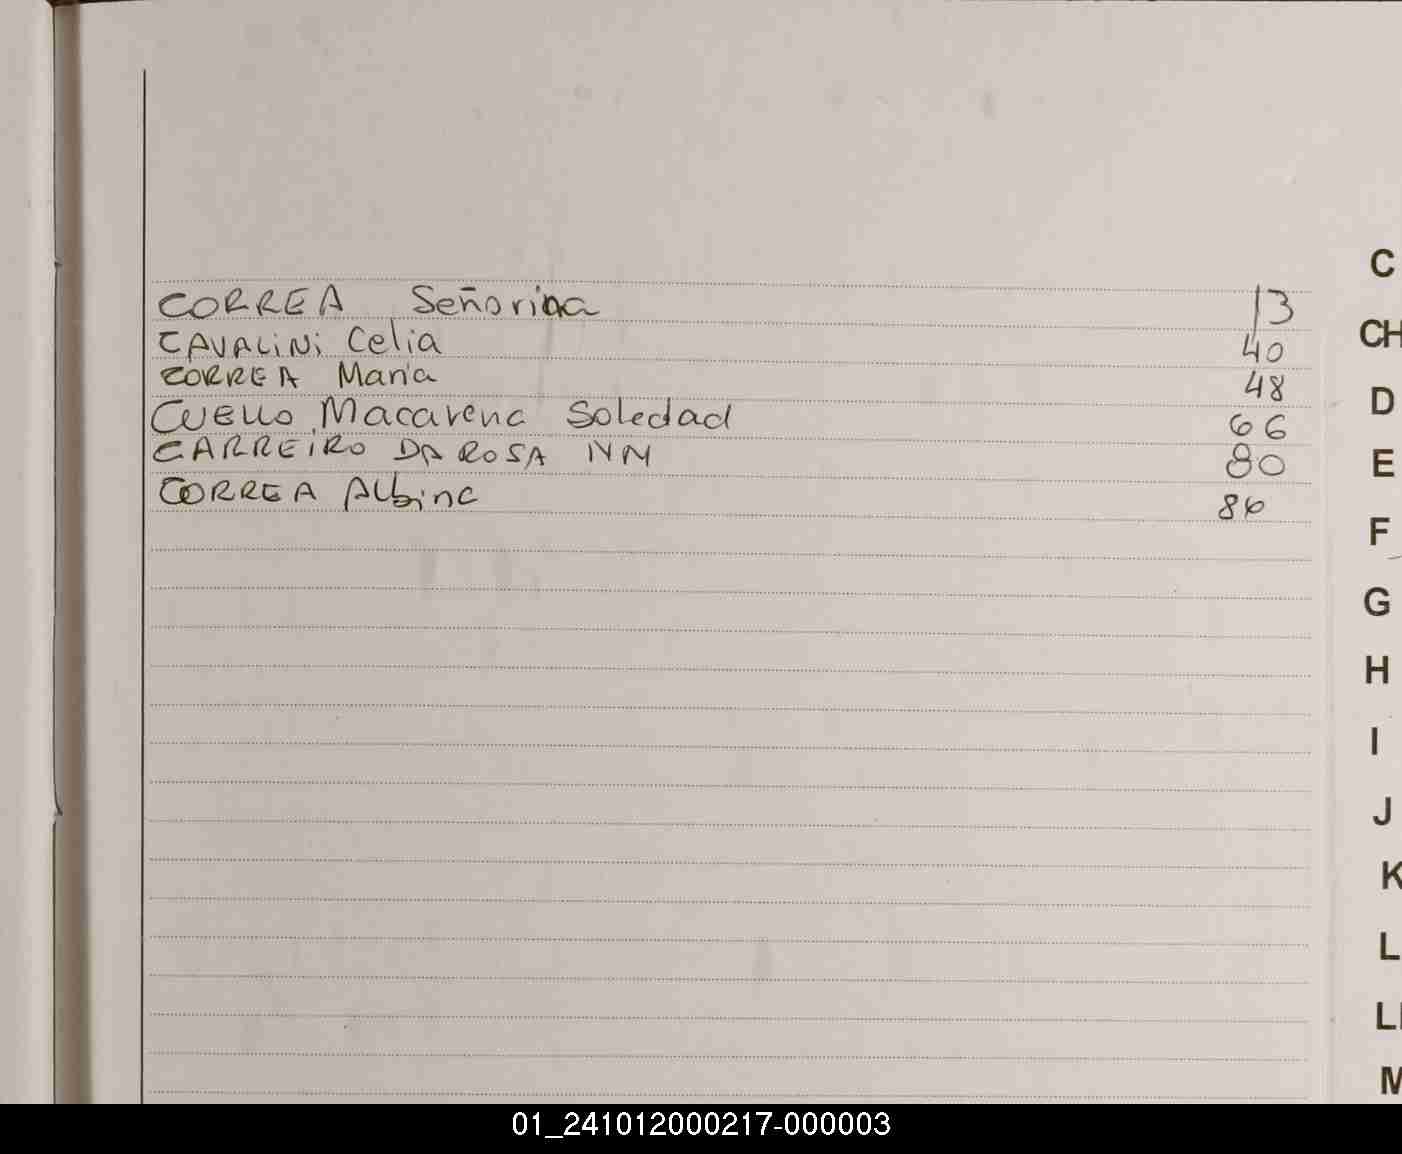 CORREA Señorina 13
CAVALINI Celia 40
CORREA Maria 48
CUELLO Macarena Soledad 66
CARREIRO DA ROSA NN 80
CORREA Albina 86
C
CH
D
E
F
G
H
I
J
K
L
LL
M
01_241012000217-000003